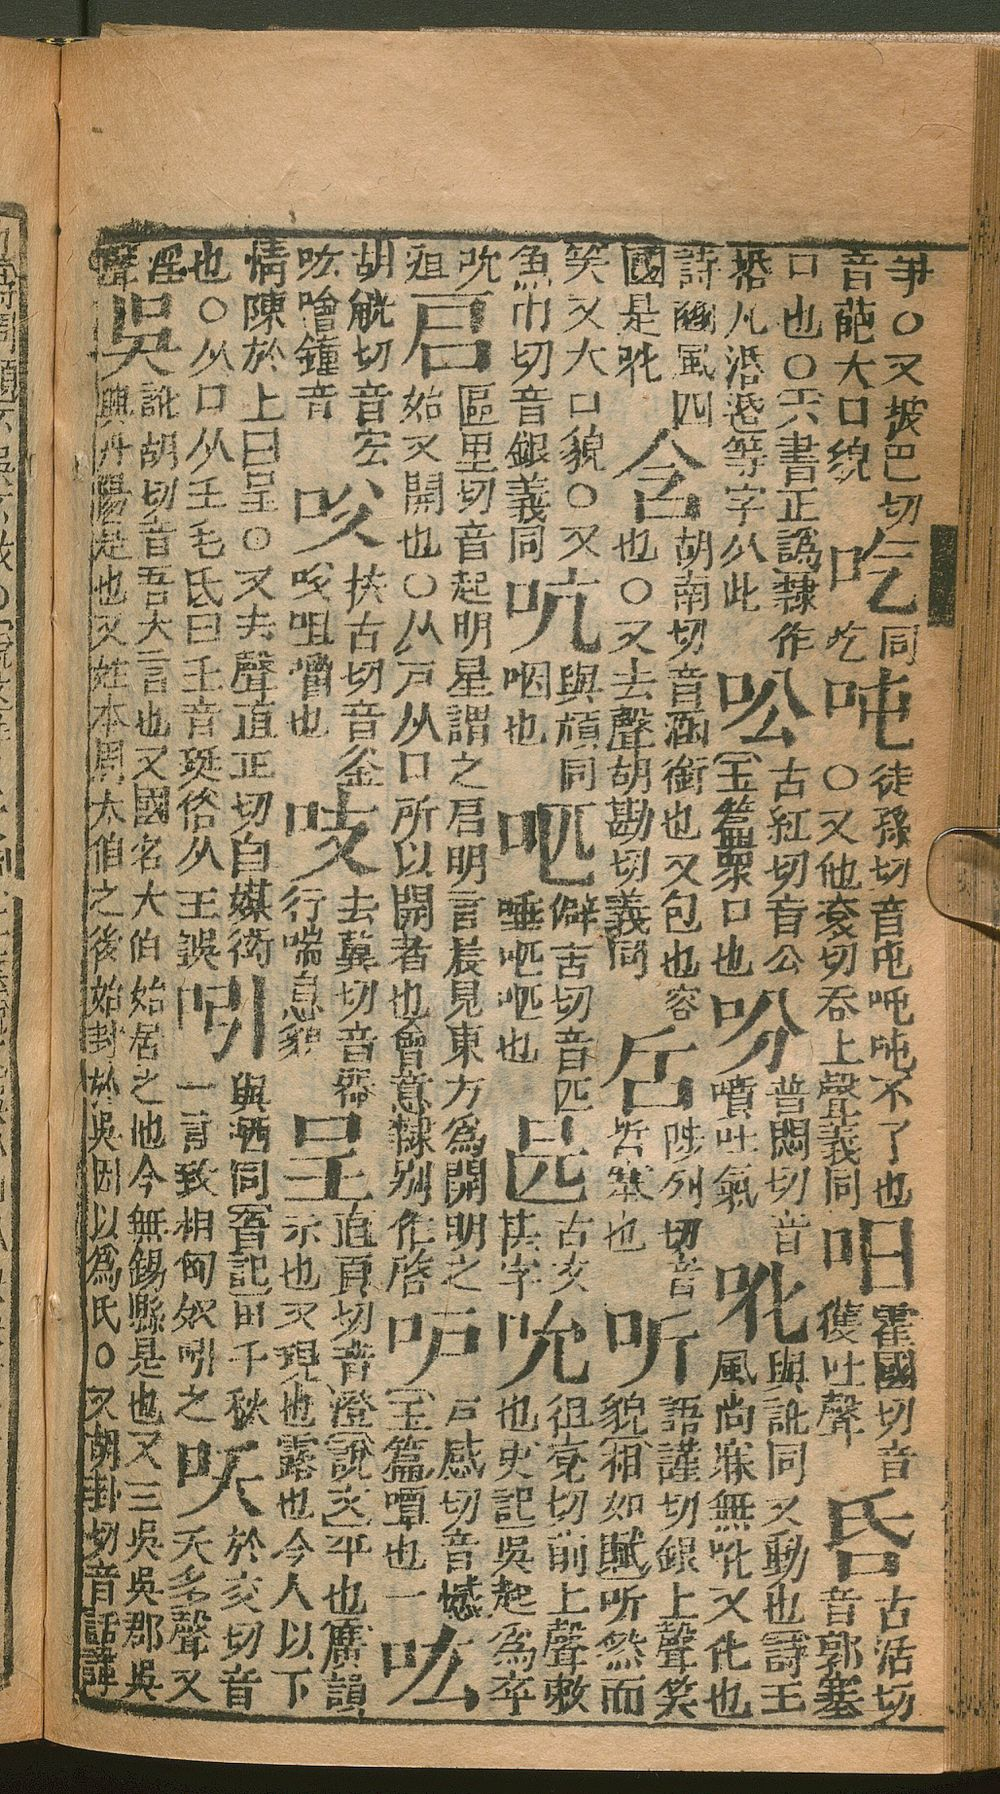 爭○又披巴切音葩大口貌 吃 同吃 吨 徒孫切音屯吨吨不了也○又他袞切吞上聲義同 㕵 霍國切音嚄吐聲 𠯑 古活切音郭塞
口也○六書正譌隸作𠯑凡湉等字从此 㕬 古紅切音公玉篇眾口也 吩 普悶切音噴吐氣 吪 與訛同又動也詩王風尚寐無吪又化也
詩豳風四國是吪 含 胡南切音涵銜也又包也容也○又去聲胡勘切義同 㖄 陟列切音哲窒也 听 語謹切銀上聲笑貌相如賦听然而
笑又大口貌○又魚巾切音銀義同 吭 與頏同咽也 㕸 僻吉切音匹唾㕸㕸也 㔷 古文其字 吮 徂兗切前上聲敕也史記吳起為卒
吮疽 启 區里切音起明星謂之启明言晨見東方為開明之始又開也○从戸从口所以開者也會意隸別作啓 戸感切音憾玉篇嘾也一 吰
胡觥切音宏吰噌鐘音 㕮 扶古切音釜㕮咀嚼也 吱 去冀切音器行喘息貌 呈 直貞切音澄說文平也廣韻示也又現也露也今人以下
情陳於上曰呈○又去聲直正切自媒衒也○从口从𡈼毛氏曰𡈼音珽俗从王誤 吲 與哂同晉記田千秋一言致相匈奴吲之 㕭 於交切音夭多聲又
淫聲 吳 訛胡切音吾大言也又國名大伯始居之也今無錫縣是也又三吳吳郡吳興丹陽是也又姓本周太伯之後始封於吳因以為氏○又胡卦切音話譁